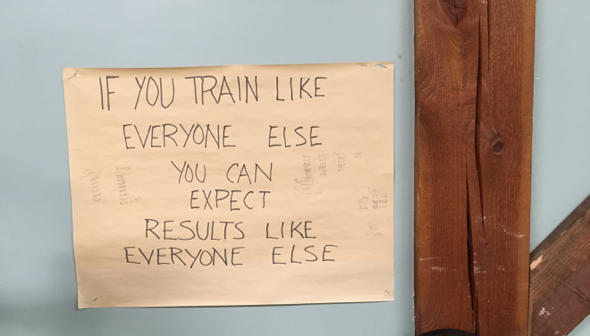 IF YOU TRAIN LIKE
EVERYONE ELSE
YOU CAN
EXPECT
RESULTS LIKE
EVERYONE ELSE